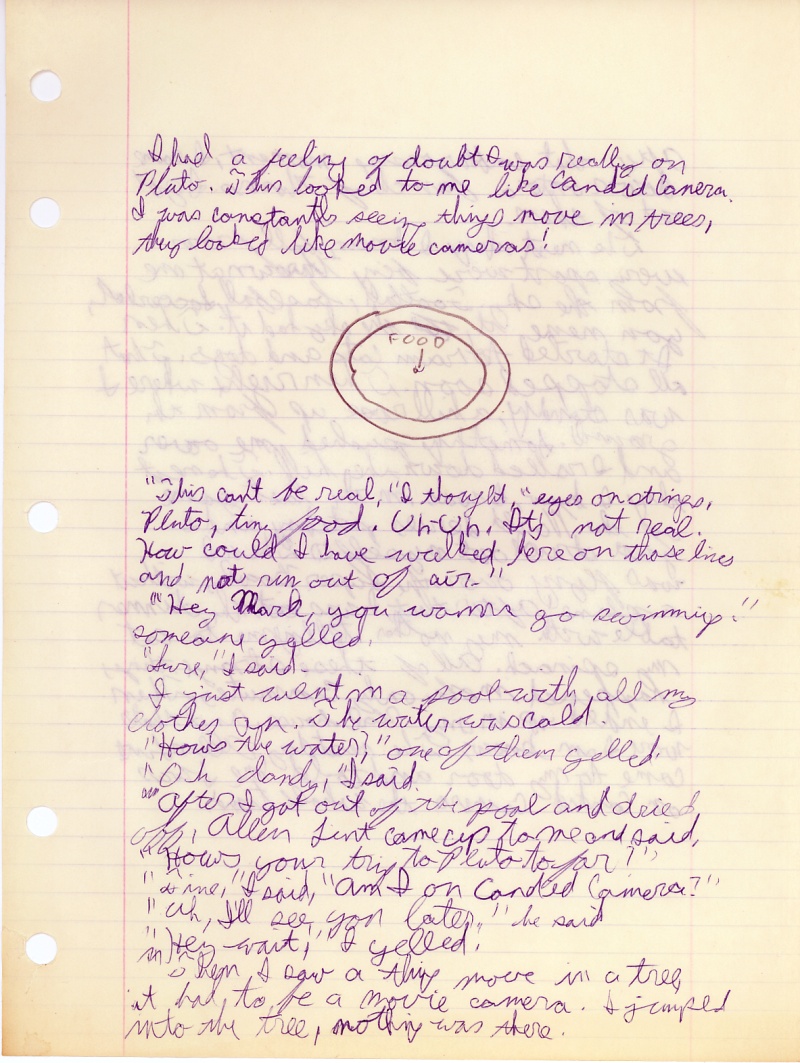 I had a feeling of doubt I was really on
Pluto. This looked to me like Candid Camera.
I was constantly seeing things move in trees,
they looked like movie cameras!
FOOD
"This can't be real," I thought, "eyes on strings,
Pluto, tiny food. Uh-Uh. It's not real.
How could I have walked here on those lines
and not run out of air."
"Hey Mark, you wanna go swimming!"
someone yelled.
"Sure," I said.
I just went in a pool with all my
clothes on. The water was cold.
"How's the water," one of them yelled.
"Oh dandy," I said.
After I got out of the pool and dried
off, Allen came up to me and said,
"How's your trip to Pluto so far?"
"Fine," I said, "am I on Candid Camera?"
"Uh, I'll see you later," he said
"Hey wait," I yelled.
Then I saw a thing move in a tree,
it had to be a movie camera. I jumped
into the tree, nothing was there.